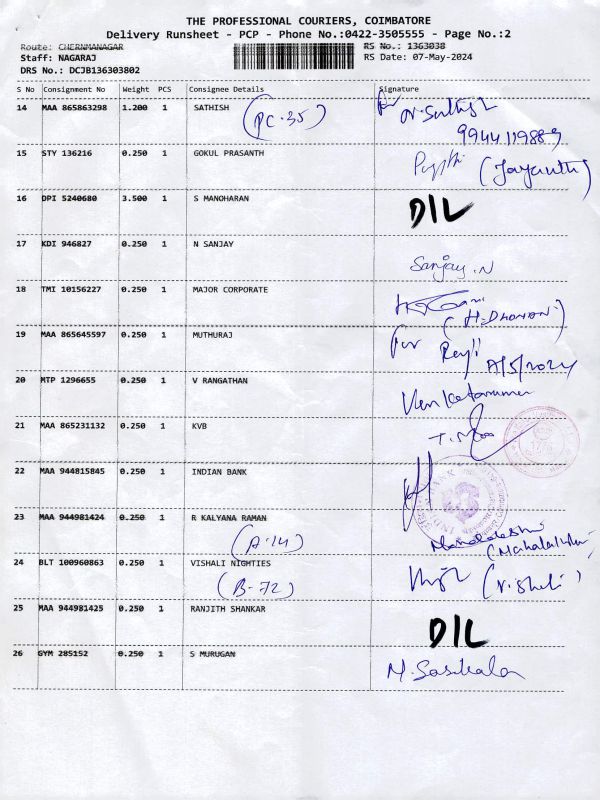 THE PROFESSIONAL COURIERS, COIMBATORE
Delivery Runsheet - PCP - Phone No.:0422-3505555 - Page No.:2
Route: CHERNMANAGAR RS No.: 1363038
Staff: NAGARAJ RS Date: 07-May-2024
DRS No.: DCJB136303802
S No Consignment No Weight PCS Consignee Details Signature
14 MAA 865863298 1.200 1 SATHISH
(PC-35)
9944119889
15 STY 136216 0.250 1 GOKUL PRASANTH
(Jayanthi)
16 DPI 5240680 3.500 1 S MANOHARAN D/L
17 KDI 946827 0.250 1 N SANJAY
Sanjay.N
18 TMI 10156227 0.250 1 MAJOR CORPORATE
19 MAA 865645597 0.250 1 MUTHURAJ
For
20 MTP 1296655 0.250 1 V RANGATHAN
21 MAA 865231132 0.250 1 KVB
22 MAA 944815845 0.250 1 INDIAN BANK
23 MAA 944981424 0.250 1 R KALYANA RAMAN
(A-14)
24 BLT 100960863 0.250 1 VISHALI NIGHTIES
(B-72)
25 MAA 944981425 0.250 1 RANJITH SHANKAR
D/L
26 GYM 285152 0.250 1 S MURUGAN
M. Sasikala